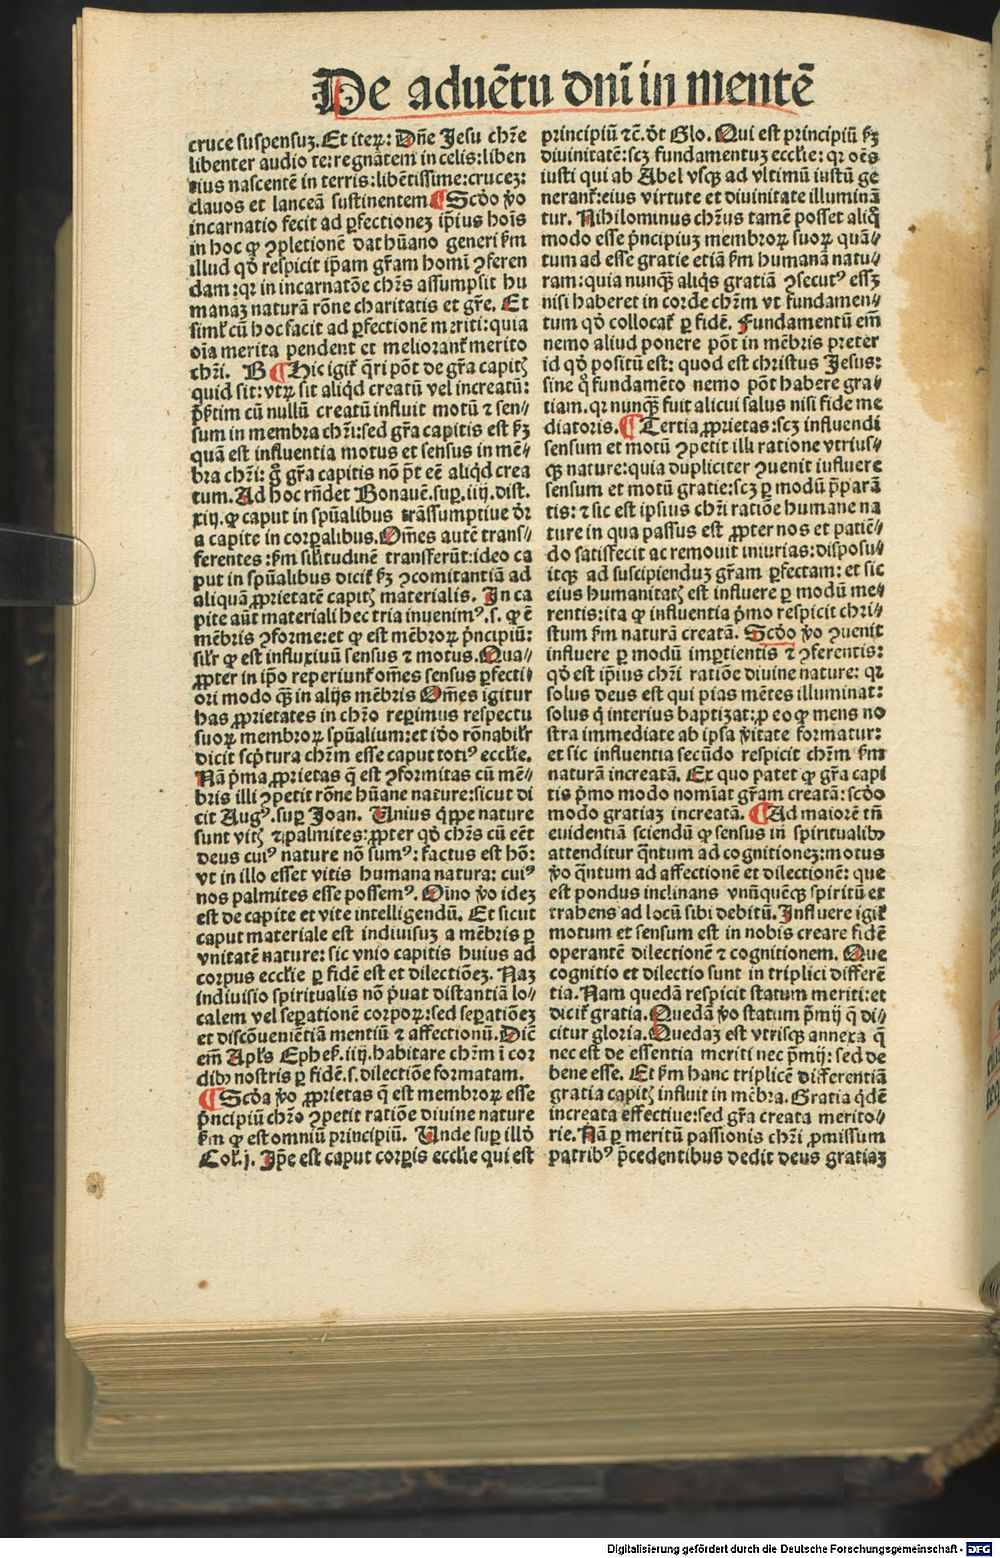 De aduētu dnī in mentē
cruce suspensuꝫ. Et iteꝝ: Dñe Jesu chr̄e
libenter audio te: regnātem in celis: liben
tius nascentē in terris: libētissime: cruceꝫ:
clauos et lanceā sustinentem ¶ Scd̓o ꝟo
incarnatio fecit ad ꝑfectioneꝫ ip̄ius hoīs
in hoc ꝙ ꝯpletionē dat hūano generi ẜm
illud qd̓ respicit ip̄am gr̄am homī ꝯferen
dam: qꝛ in incarnatōe chr̄s assumpsit hu
manaꝫ naturā rōne charitatis et gr̄e. Et
simlr̄ cū hoc facit ad ꝑfectionē meriti: quia
oīa merita pendent et meliorant᷑ merito
chr̄i. B ¶ Hic igit᷑ q̄ri pōt de gr̄a capitꝭ
quid sit: vtꝝ sit aliqd̓ creatū vel increatū:
p̄ẜtim cū nullū creatū influit motū ⁊ sen⸗
sum in membra chr̄i: sed gr̄a capitis est ẜꝫ
quā est influentia motus et sensus in mē⸗
bra chr̄i: g̊ gr̄a capitis nō pt̄ eē aliqd̓ crea
tum. Ad hoc rñdet Bonauē. suꝑ. iiij. dist.
xiij. ꝙ caput in spūalibus trāssumptiue dr̄
a capite in corꝑalibus. Om̄es autē trans⸗
ferentes: ẜm sil̓itudinē transferūt: ideo ca
put in spūalibus dicit᷑ ẜꝫ ꝯcomitantiā ad
aliquā ꝓprietatē capitꝭ materialis. In ca
pite aūt materiali hec tria inuenimꝰ. s. ꝙ ē
mēbris ꝯforme: et ꝙ est mēbroꝝ p̄ncipiū:
sil̓r ꝙ est influxiuū sensus ⁊ motus. Qua⸗
ꝓpter in ip̄o reperiunt᷑ om̄es sensus ꝑfecti⸗
ori modo qꝫ̄ in alijs mēbris Om̄es igitur
has ꝓprietates in chr̄o reꝑimus respectu
suoꝝ membroꝝ spūalium: et id̓o rōnabil̓r
dicit scp̄tura chr̄m esse caput totiꝰ eccl̓ie.
Nā p̄ma ꝓprietas q̄ est ꝯformitas cū mē⸗
bris illi ꝯpetit rōne hūane nature: sicut di
cit Augꝰ. suꝑ Joan. Unius q̄ppe nature
sunt vitꝭ ⁊ palmites: ꝓpter qd̓ chr̄s cū eēt
deus cuiꝰ nature nō sumꝰ: factus est hō:
vt in illo esset vitis humana natura: cuiꝰ
nos palmites esse possemꝰ. Oīno ꝟo ideꝫ
est de capite et vite intelligendū. Et sicut
caput materiale est indiuisuꝫ a mēbris ꝑ
vnitatē nature: sic vnio capitis huius ad
corpus eccl̓ie ꝑ fidē est et dilectiōeꝫ. Naꝫ
indiuisio spiritualis nō p̄uat distantiā lo⸗
calem vel seꝑationē corpoꝝ: sed seꝑatiōeꝫ
et discōuenientiā mentiū ⁊ affectionū. Diē
em̄ Apl̓s Ephes̓. iiij. habitare chr̄m ī cor
dibꝫ nostris ꝑ fidē. s. dilectiōe formatam.
¶ Scd̓a ꝟo ꝓprietas q̄ est membroꝝ esse
p̄ncipiū chr̄o ꝯpetit ratiōe diuine nature
ẜm ꝙ est omniū principiū. Unde suꝑ illd̓
Col̓. j. Ip̄e est caput corꝑis eccl̓ie qui est
principiū ⁊c̄. dt̄ Glo. Qui est principiū ẜꝫ
diuinitatē: scꝫ fundamentuꝫ eccl̓ie: qꝛ oēs
iusti qui ab Abel vsqꝫ ad vltimū iustū ge
nerant᷑: eius virtute et diuinitate illuminā
tur. Nihilominus chr̄us tamē posset aliq̊
modo esse p̄ncipiuꝫ membroꝝ suoꝝ quā⸗
tum ad esse gratie etiā ẜm humanā natu⸗
ram: quia nunqꝫ̄ aliqs̓ gratiā ꝯsecutꝰ esꝫ
nisi haberet in corde chr̄m vt fundamen⸗
tum qd̓ collocat᷑ ꝑ fidē. Fundamentū em̄
nemo aliud ponere pōt in mēbris preter
id qd̓ positū est: quod est christus Jesus:
sine q̊ fundamēto nemo pōt habere gra⸗
tiam. qꝛ nunqꝫ̄ fuit alicui salus nisi fide me
diatoris. ¶ Tertia ꝓprietas: scꝫ influendi
sensum et motū ꝯpetit illi ratione vtrius⸗
qꝫ nature: quia dupliciter ꝯuenit influere
sensum et motū gratie: scꝫ ꝑ modū p̄parā
tis: ⁊ sic est ipsius chr̄i ratiōe humane na
ture in qua passus est ꝓpter nos et patiē⸗
do satisfecit ac remouit iniurias: disposu⸗
itqꝫ ad suscipienduꝫ gr̄am ꝑfectam: et sic
eius humanitatꝭ est influere ꝑ modū me⸗
rentis: ita ꝙ influentia p̄mo respicit chri⸗
stum ẜm naturā creatā. Scd̓o ꝟo ꝯuenit
influere ꝑ modū imꝑtientis ⁊ ꝯferentis:
qd̓ est ip̄ius chr̄i ratiōe diuine nature: qꝛ
solus deus est qui pias mētes illuminat:
solus q̇ interius baptizat: ꝓ eo ꝙ mens no
stra immediate ab ipsa ꝟitate formatur:
et sic influentia secūdo respicit chr̄m ẜm
naturā increatā. Ex quo patet ꝙ gr̄a capi
tis p̄mo modo nomīat gr̄am creatā: scd̓o
modo gratiaꝫ increatā. ¶ Ad maiorē tn̄
euidentiā sciendū ꝙ sensus in spiritualibꝫ
attenditur q̄ntum ad cognitioneꝫ: motus
ꝟo q̄ntum ad affectionē et dilectionē: que
est pondus inclinans vnūquēqꝫ spiritū ex
trahens ad locū sibi debitū. Influere igit᷑
motum et sensum est in nobis creare fidē
operantē dilectionē ⁊ cognitionem. Que
cognitio et dilectio sunt in triplici differē
tia. Nam quedā respicit statum meriti: et
dicit᷑ gratia. Quedā ꝟo statum p̄mij q̄ di⸗
citur gloria. Quedaꝫ est vtrisqꝫ annexa q̄
nec est de essentia meriti nec p̄mij: sed de
bene esse. Et ẜm hanc triplicē differentiā
gratia capitꝭ influit in mēbra. Gratia qd̓ē
increata effectiue: sed gr̄a creata merito⸗
rie. Nā ꝑ meritū passionis chr̄i ꝓmissum
patribꝰ p̄cedentibus dedit deus gratiaꝫ
Digitalisierung gefördert durch die Deutsche Forschungsgemeinschaft - DFG